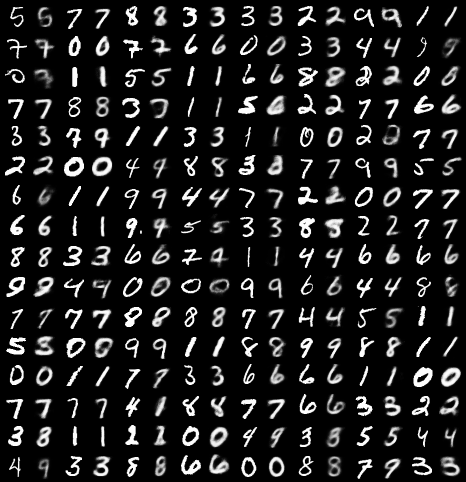 5 5 7 7 8 8 3 3 3 3 2 2 9 9 1 1
7 7 0 0 7 7 6 6 0 0 3 3 4 4 9 9
0 1 1 5 5 1 1 6 6 8 8 2 2 0 0
7 7 8 8 3 3 1 1 5 6 2 2 7 7 6 6
3 3 7 9 1 1 3 3 1 1 0 0 2 2 7 7
2 2 0 0 4 4 8 8 3 8 7 7 9 9 5 5
6 6 1 1 9 9 4 4 7 7 2 2 0 0 7 7
6 6 1 1 9. 9 5 5 3 3 8 8 2 2 7 7
8 8 3 3 6 6 7 4 1 1 4 4 6 6 6 6
9 9 4 4 0 0 0 0 9 9 6 6 4 4 8 8
7 7 7 7 8 8 8 8 7 7 4 4 5 5 1 1
5 3 0 0 9 9 1 1 8 8 9 9 8 8 1 1
0 0 1 1 7 7 3 3 6 6 6 6 1 1 0 0
7 7 7 7 4 1 8 8 7 7 6 6 3 3 2 2
3 8 1 1 2 2 0 0 4 9 3 8 5 5 4 4
4 9 3 3 8 8 6 6 0 0 8 8 7 9 3 3